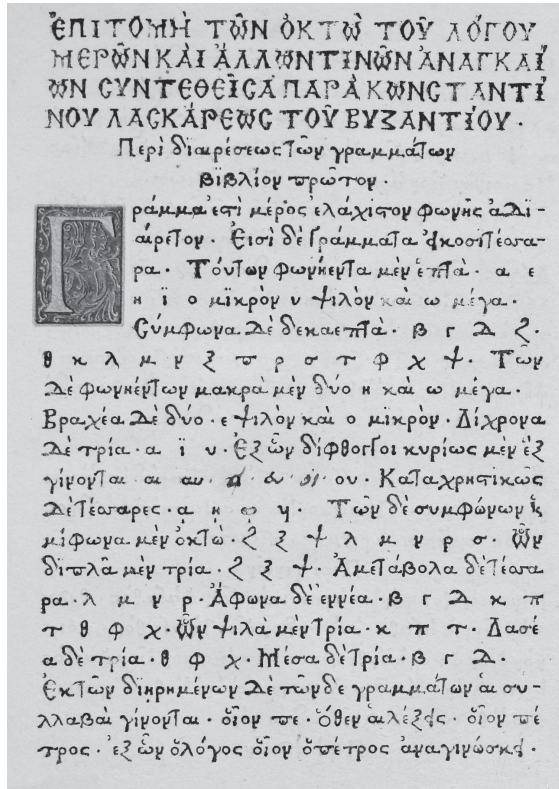 ἘΠΙΤΟΜῊ ΤῶΝ ὈΚΤῺ ΤΟΥ͂ ΛΌΓΟΥ
ΜΕΡῶΝ ΚΑῚ ἈΛΛωΝ ΤΙΝῶΝ ἈΝΑΓΚΑΊ
ωΝ CΥΝΤΕΘΕῖCΑ ΠΑΡᾺ ΚωΝCΤΑΝΤΙ
ΝΟΥ ΛΑCΚΆΡΕωC ΤΟΥ͂ ΒΥΖΑΝΤΊΟΥ·
Περὶ δϊαιρέσεως τῶν γραμμάτων
βϊβλίον πρῶτον·
Γράμμα ἐστὶ μέρος ἐλάχιστον φωνῆς ἀδϊ-
αίρετον· Εἰσὶ δὲ Γράμματα ἐικοσιτέσσα-
ρα· Τούτων φωνήεντα μὲν ἑπτὰ· α ε
η ϊ ο μϊκρὸν υ ψιλὸν καὶ ω μέγα·
Σύμφωνα δὲ δεκαεπτὰ· β γ δ ζ·
θ κ λ μ ν ξ π ρ σ τ φ χ ψ· Τῶν
δὲ φωνηέντων μακρὰ μὲν δύο η καὶ ω μέγα·
Βραχέα δὲ δύο· ε ψιλὸν καὶ ο μικρὸν· Δίχρονα
δὲ τρία· α ϊ υ· Ἐξ ὧν δίφθογγοι κυρίως μὲν ἑξ
γίνονται αι αυ ει ευ οι ου· Καταχρηστικῶς
δὲ τέσσαρες· ᾳ ῃ ῳ υι· Τῶν δὲ συμφώνων ἡ
μίφωνα μὲν ὀκτὼ· ζ ξ ψ λ μ ν ρ σ· ὧν
δϊπλᾶ μὲν τρία· ζ ξ ψ· Ἀμετάβολα δὲ τέσσα
ρα· λ μ ν ρ· Ἄφωνα δὲ ἐννέα· β γ δ κ π
τ θ φ χ· ὧν ψιλὰ μὲν τρία· κ π τ· Δασέ
α δὲ τρία· θ φ χ· Μέσα δὲ τρία· β γ δ·
Ἐκ τῶν διηρημένων δὲ τῶν δε γραμμάτων ἁι συ-
λλαβαὶ γίνονται· ὅιον πε· ὅθεν ἁι λέξεις· ὅιον πέ
τρος· ἐξ ὧν ὁ λόγος ὅιον ὁ πέτρος ἀναγινώσκει·